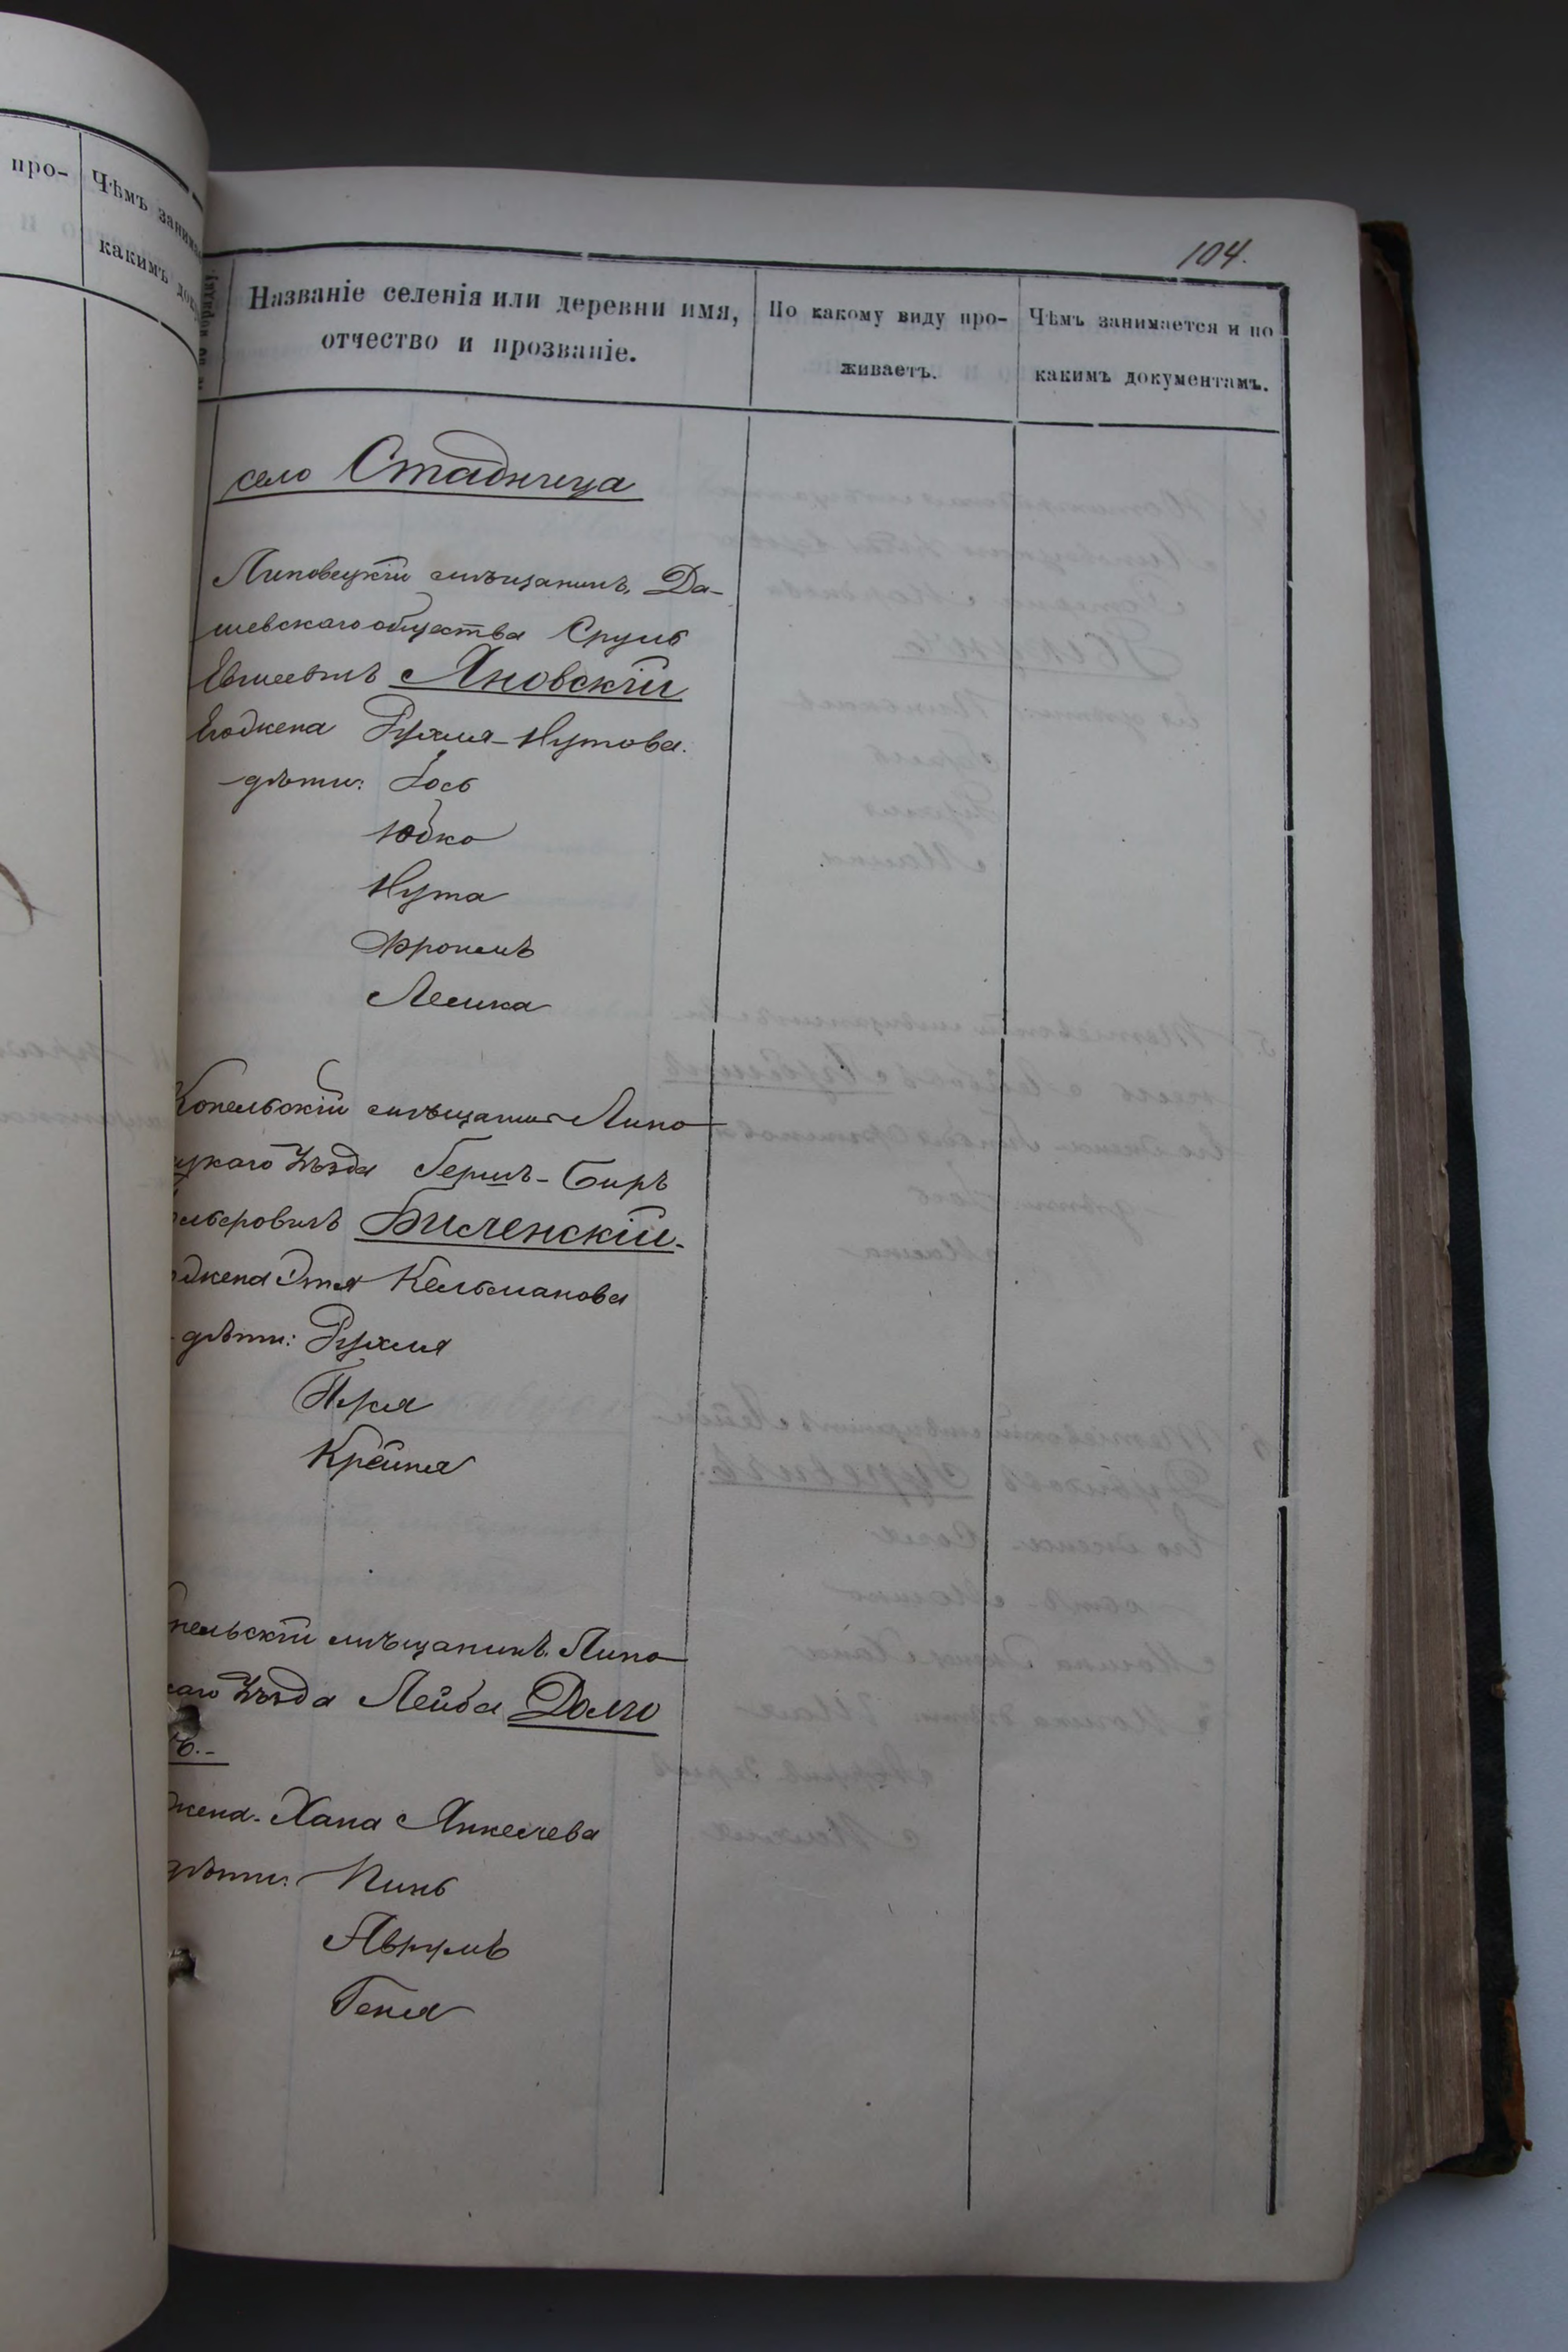 про-
Чѣмъ
какимъ
104.
Названіе селенія или деревни имя,
отчество и прозваніе.
По какому виду про-
живаетъ.
Чѣмъ занимается и по
какимъ документамъ.
село Стадница
Липовецкій мѣщанинъ, Да-
шевскаго общества Сруль
Евшеевичъ Яновскій
Его жена Рухля-Нутова.
дѣти: Іось
Юдко
Нута
Фроимъ
Лейка
Конельскій мѣщанинъ Липо
цкаго Уѣзда Гершъ-Беръ
Биленскій.
жена Этя Кельманова
дѣти: Рухля
Перля
Крейня
нельскій мѣщанинъ Липо
каго Уѣзда Лейба Долго
ъ.-
жена-Хана Янкелева
дѣти: Пинь
Аврумъ
Геня